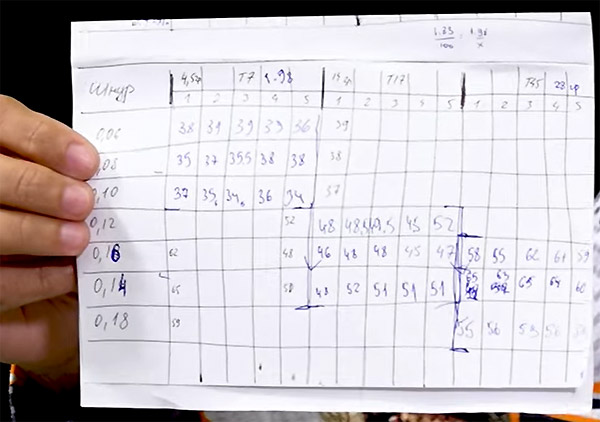 1.33 1.98
100 x
Шнур 4,5гр T7 1.98 T17 T25 23 гр
1 2 3 4 5 1 2 3 4 5 1 2 3 4 5
0,06 38 39 39 36 39
0,08 35 37 35.5 38 38 38
0,10 37 35. 34. 36 34 37
0,12 52 48 48,5 49.5 45 52
0,16 62 48 46 48 48 45 47 58 55 62 61 59
0,14 65 50 48 52 51 51 51 65 63 65 64 60
0,18 59 55 56 53